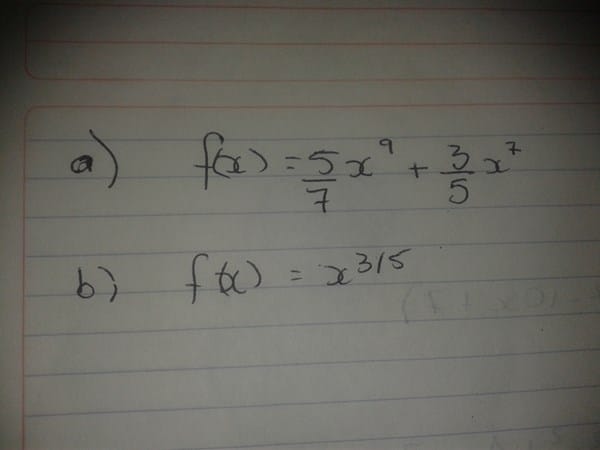 a) f(x) = 5/7 x⁹ + 3/5 x⁷
b) f(x) = x^3/5